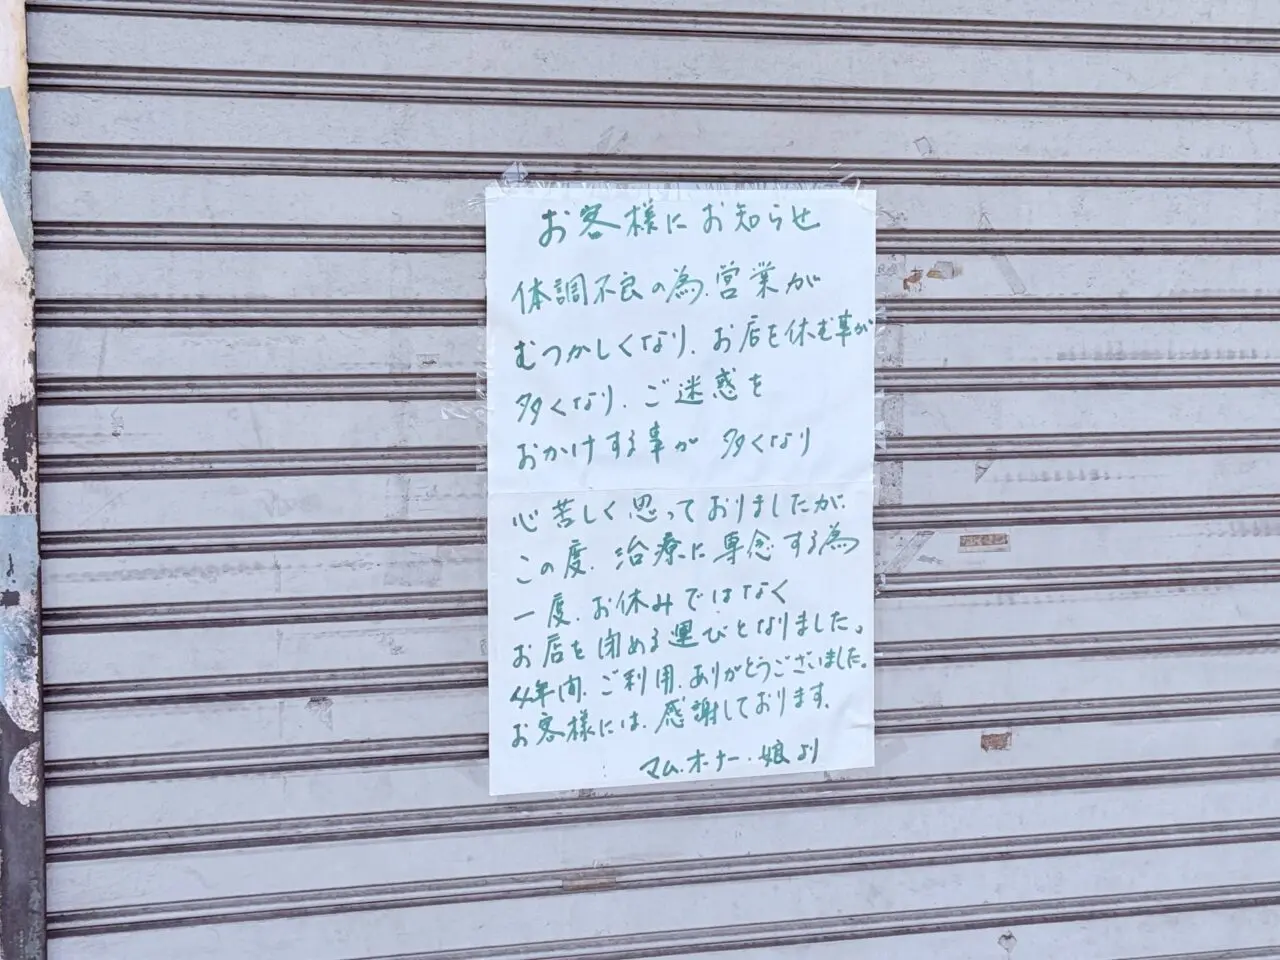 お客様にお知らせ
体調不良の為、営業が
むつかしくなり、お店を休む事が
多くなり、ご迷惑を
おかけする事が 多くなり
心苦しく思っておりましたが、
この度、治療に専念する為
一度、お休みではなく
お店を閉める運びとなりました。
4年間、ご利用、ありがとうございました。
お客様には、感謝しております。
マム・オーナー・娘より